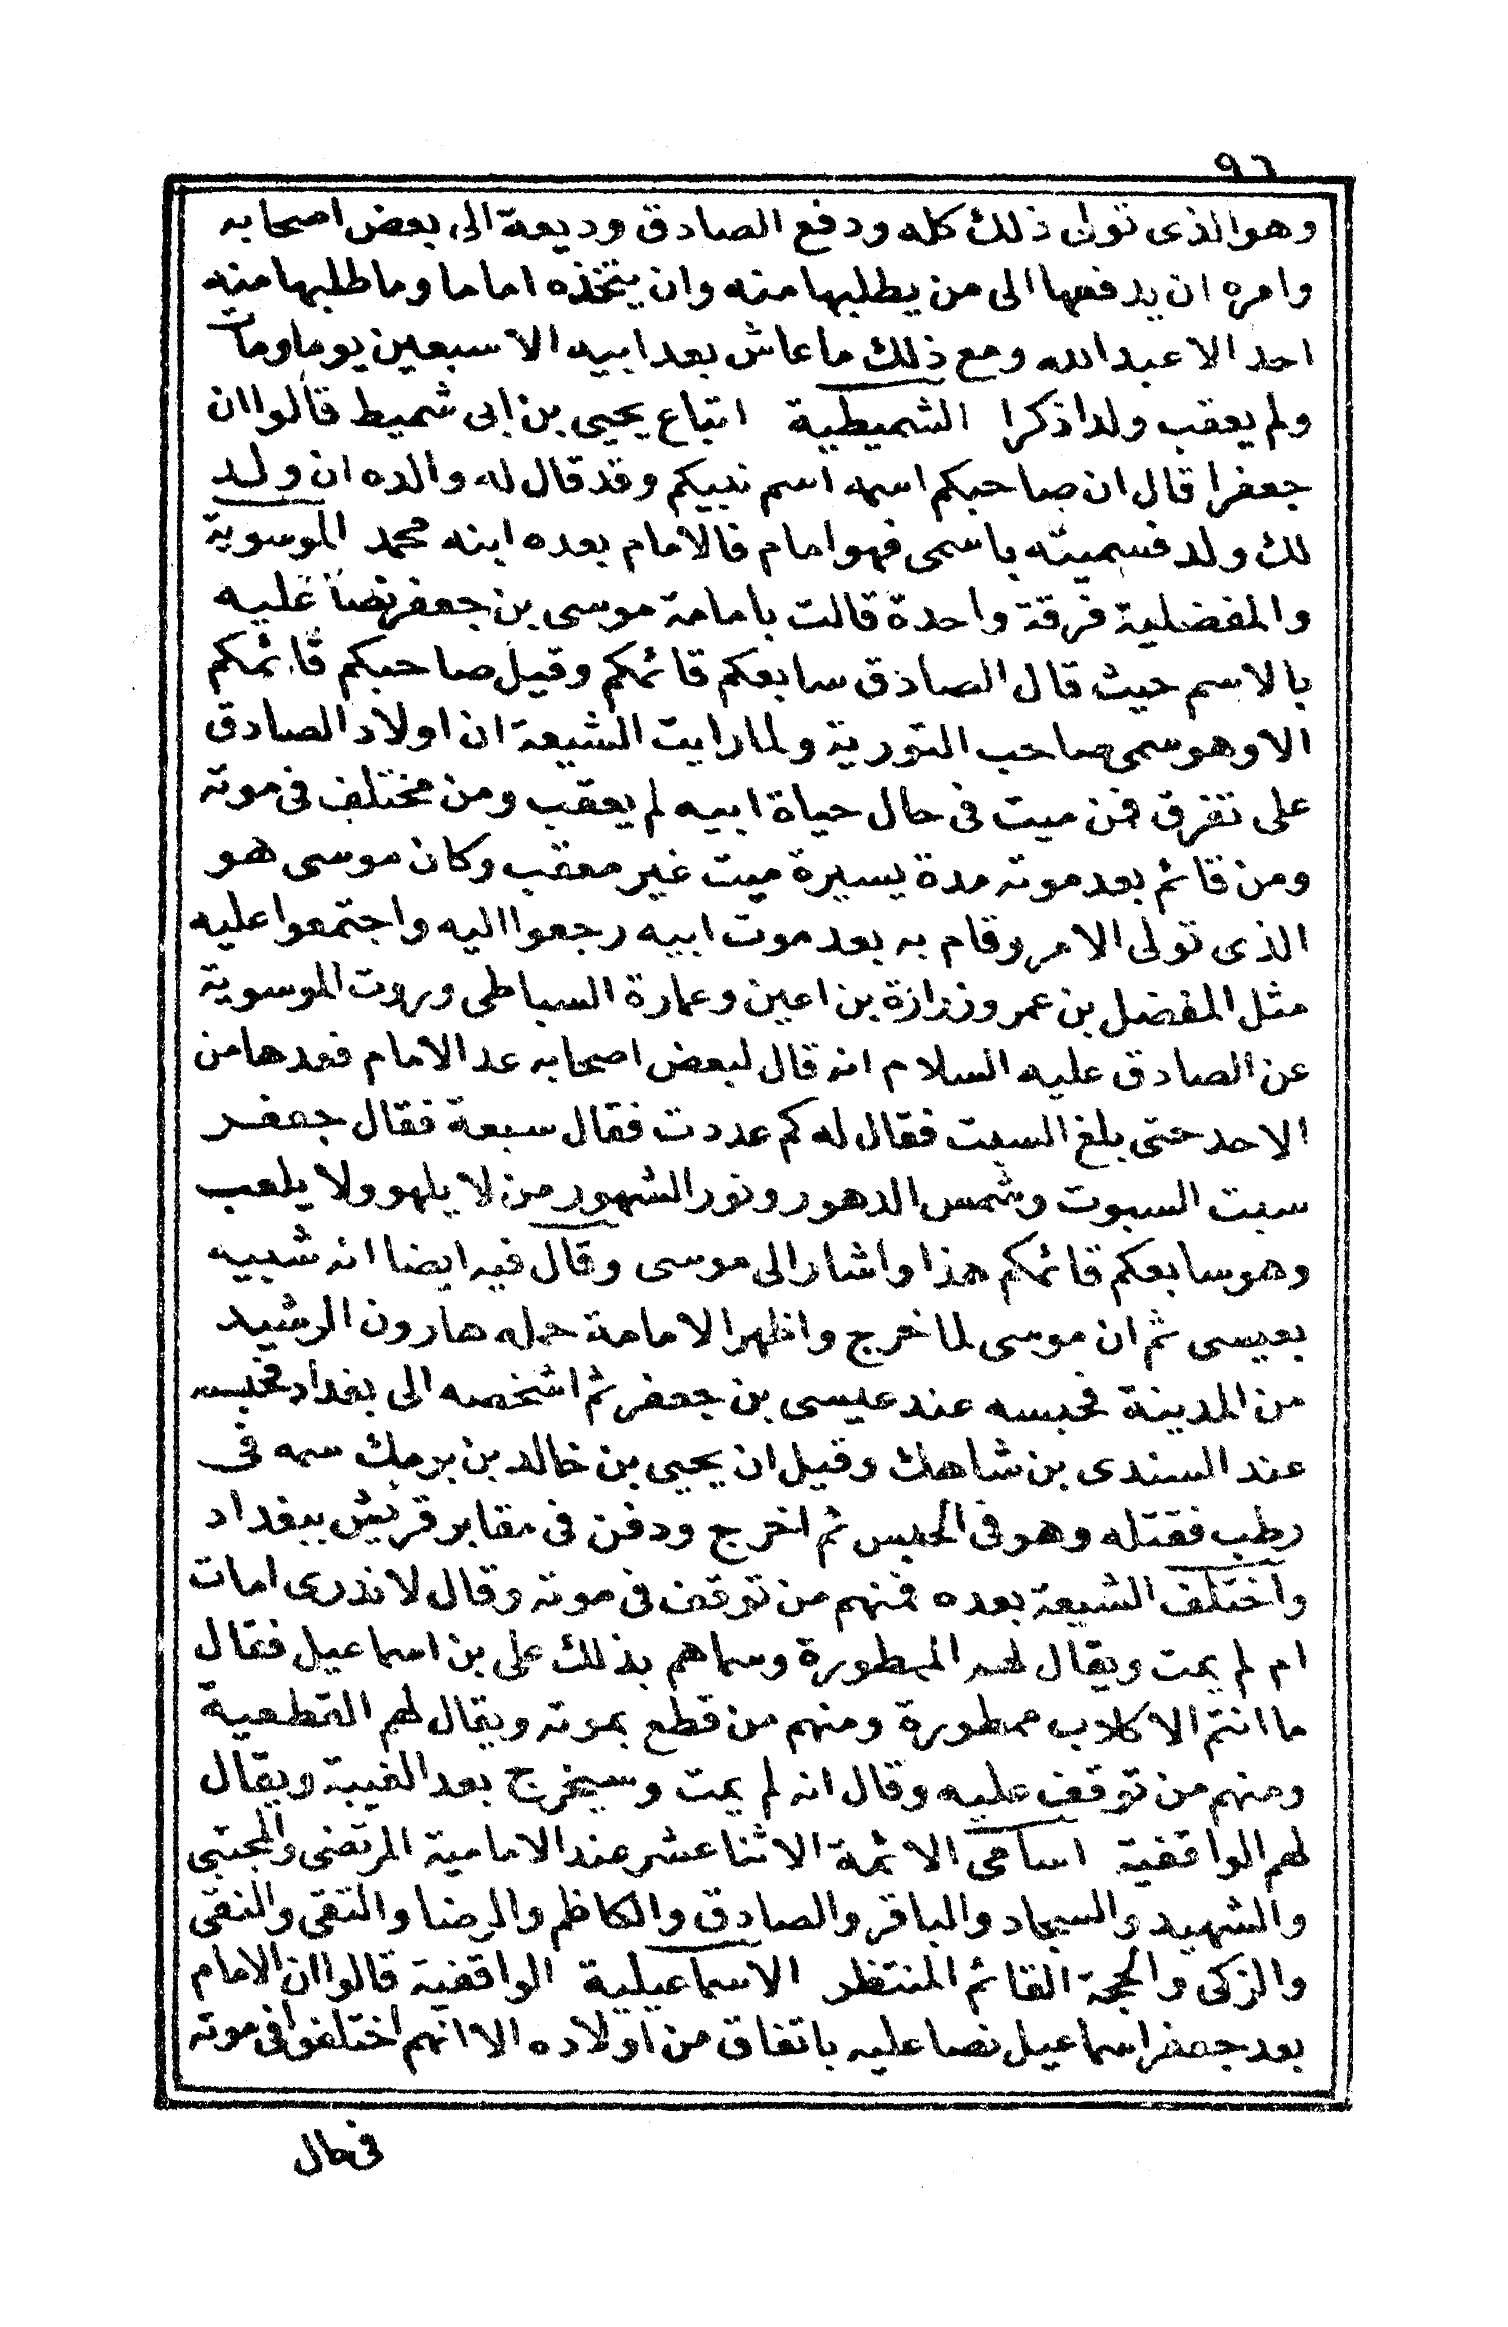 ٩٦
وهو الذى تولى ذلك كله ودفع الصادق وديعة الى بعض اصحابه
وامره ان يدفعها الى من يطلبها منه وان يتخذه اماما وما طلبها منه
احد الا عبد الله ومع ذلك ما عاش بعد ابيه الا سبعين يوما ومات
ولم يعقب ولدا ذكرا الشميطية اتباع يحيى بن ابى شميط قالوا ان
جعفرا قال ان صاحبكم اسمه اسم نبيكم وقد قال له والده ان ولد
لك ولد فسميته باسمى فهو امام فالامام بعده ابنه محمد الموسوية
والمفضلية فرقة واحدة قالت بامامة موسى بن جعفر نصا عليه
بالاسم حيث قال الصادق سابعكم قائمكم وقيل صاحبكم قائمكم
الا وهو سمى صاحب التورية ولما رايت الشيعة ان اولاد الصادق
على تفرق فمن ميت فى حال حياة ابيه لم يعقب ومن مختلف فى موته
ومن قائم بعد موته مدة يسيرة ميت غير معقب وكان موسى هو
الذى تولى الامر وقام به بعد موت ابيه رجعوا اليه واجتمعوا عليه
مثل المفضل بن عمر وزرارة بن اعين وعمارة السباطى وروت الموسوية
عن الصادق عليه السلام انه قال لبعض اصحابه عد الامام فعدها من
الاحد حتى بلغ السبت فقال له كم عددت فقال سبعة فقال جعفر
سبت السبوت وشمس الدهور ونور الشهور من لا يلهو ولا يلعب
وهو سابعكم قائمكم هذا واشار الى موسى وقال فيه ايضا انه شبيه
بعيسى ثم ان موسى لما خرج واظهر الامامة حمله هارون الرشيد
من المدينة فحبسه عند عيسى بن جعفر ثم اشخصه الى بغداد فحبسه
عند السندى بن شاهك وقيل ان يحيى بن خالد بن برمك سمه فى
رطب فقتله وهو فى الحبس ثم اخرج ودفن فى مقابر قريش ببغداد
واختلف الشيعة بعده فمنهم من توقف فى موته وقال لا ندرى امات
ام لم يمت ويقال لهم الممطورة وسماهم بذلك على بن اسماعيل فقال
ما انتم الا كلاب ممطورة ومنهم من قطع بموته ويقال لهم القطعية
ومنهم من توقف عليه وقال انه لم يمت وسيخرج بعد الغيبة ويقال
لهم الواقفية اسامى الائمة الاثنا عشر عند الامامية المرتضى والمجتبى
والشهيد والسجاد والباقر والصادق والكاظم والرضا والتقى والنقى
والزكى والحجة القائم المنتظر الاسماعيلية الواقفية قالوا ان الامام
بعد جعفر اسماعيل نصا عليه باتفاق من اولاده الا انهم اختلفوا فى موته
فى حال